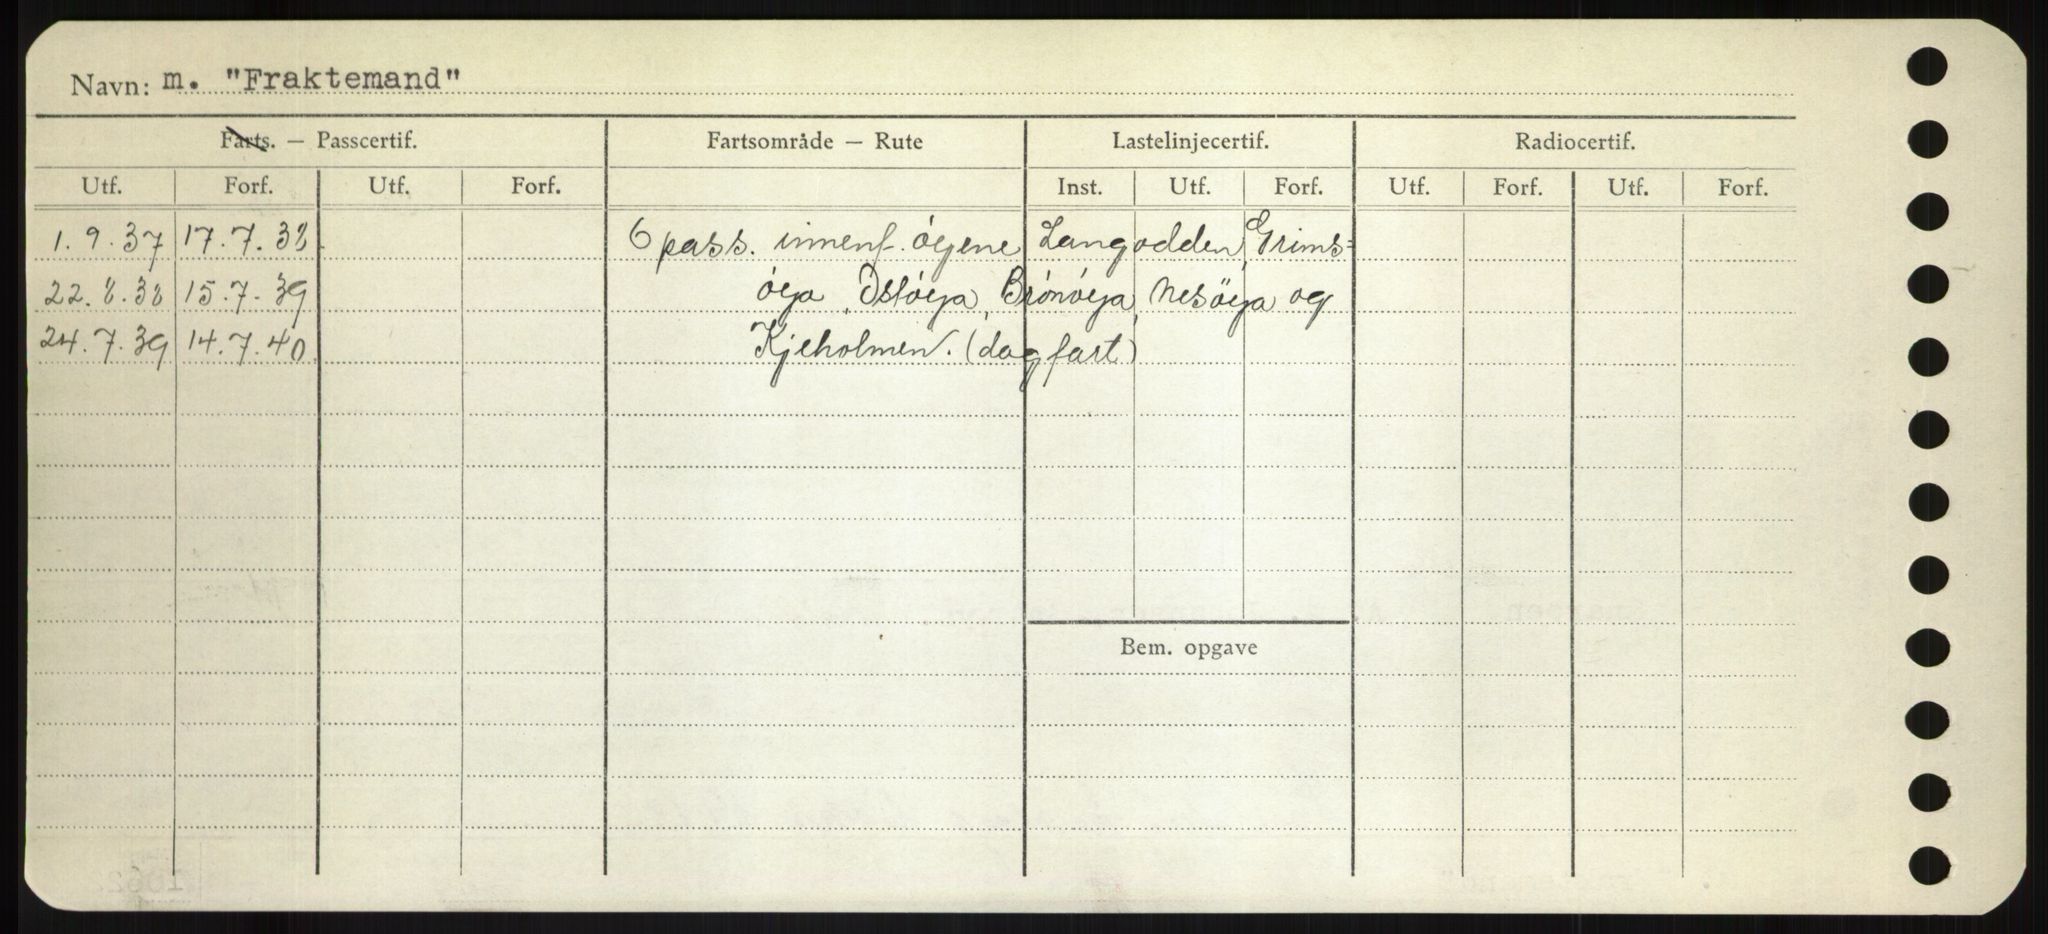 Navn: m. "Fraktemand"
Farts. — Passcertif. Fartsområde — Rute Lastelinjecertif. Radiocertif.
Utf. Forf. Utf. Forf. Inst. Utf. Forf. Utf. Forf. Utf. Forf.
1.9.37 17.7.38 6 pass. innenf. öyene Langodden, Grims=
22.8.38 15.7.39 öya, Ostöya, Brönöya, Nesöya og
24.7.39 14.7.40 Kjeholmen. (dagfart)
Bem. opgave